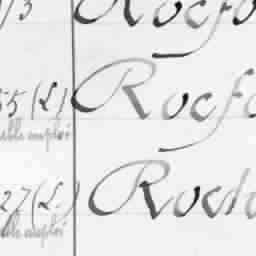 /3 Rocfo
55 (L) Rocfo
able emploi
27 (L.) Roch
able emploi